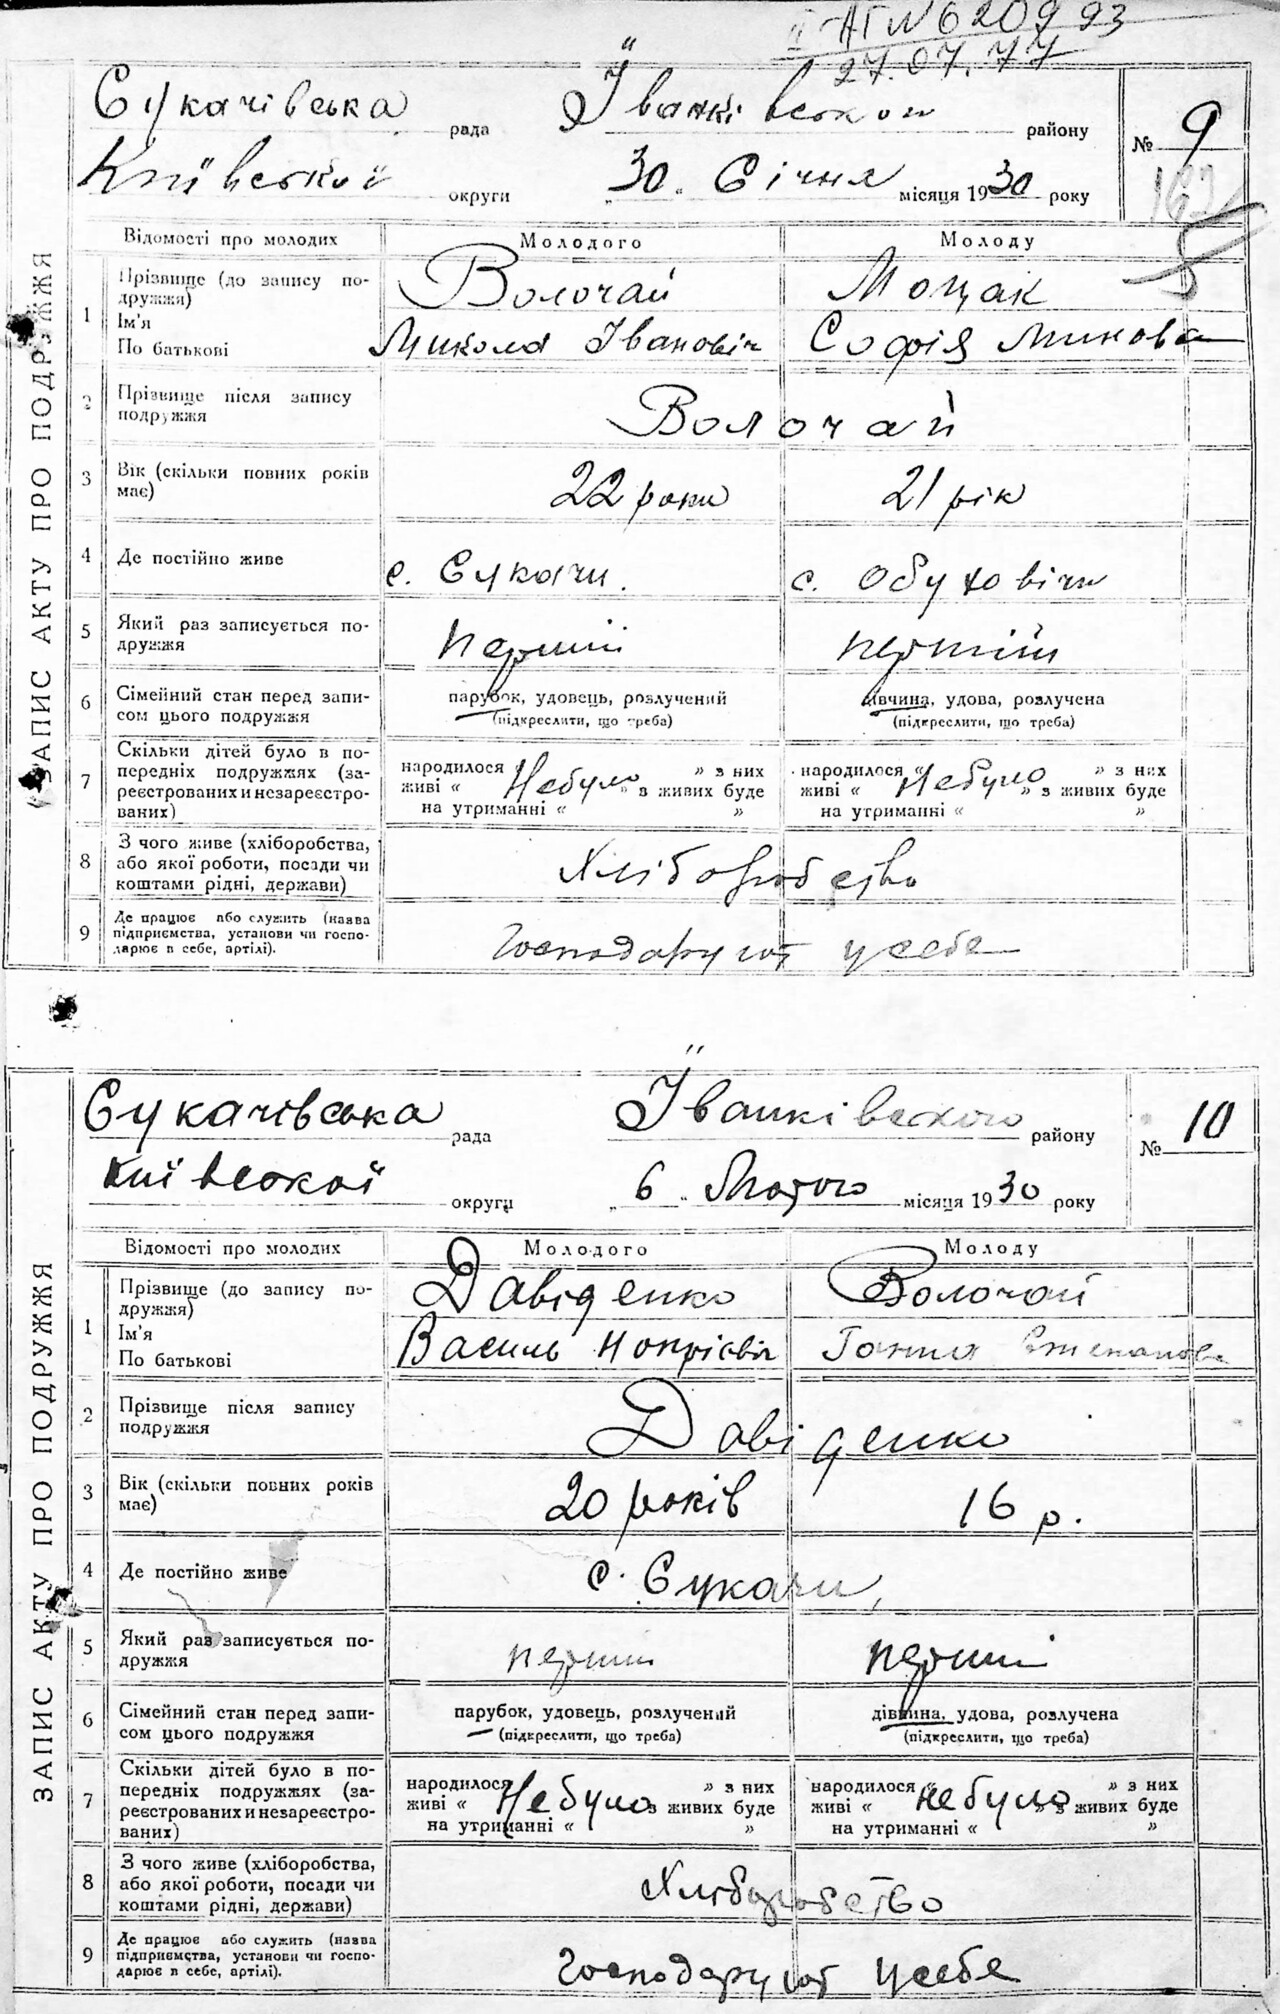 АГ № 620993
27.07.77
Сукачівська рада Їванківськои району № 9
Київськой округи „30„ Січня місяця 1930 року
ЗАПИС АКТУ ПРО ПОДРУЖЖЯ
Відомості про молодих Молодого Молоду
1 Прізвище (до запису по-
дружжя) Волочай Моцак
Ім'я
По батькові Микола Іванович Софія Микова
2 Прізвище після запису
подружжя Волочай
3 Вік (скільки повних років
має) 22 роки 21 рік
4 Де постійно живе с. Сукачи. с. Обуховічи
5 Який раз записується по-
дружжя перший перший
6 Сімейний стан перед запи-
сом цього подружжя парубок, удовець, розлучений дівчина, удова, розлучена
(підкреслити, що треба) (підкреслити, що треба)
7 Скільки дітей було в по-
передніх подружжях (за-
реєстрованих и незареєстро-
ваних)
народилося „ Небуло „ з них народилося „ Небуло „ з них
живі „ „ з живих буде живі „ „ з живих буде
на утриманні „ „ на утриманні „ „
8 З чого живе (хліборобства,
або якої роботи, посади чи
коштами рідні, держави) Хліборобство
9 Де працює або служить (назва
підприємства, установи чи госпо-
дарює в себе, артілі). Господарують усебе
Сукачівська рада Їванківского району № 10
Київскої округи „6„ Лютого місяця 1930 року
ЗАПИС АКТУ ПРО ПОДРУЖЖЯ
Відомості про молодих Молодого Молоду
1 Прізвище (до запису по-
дружжя) Давіденко Волочай
Ім'я
По батькові Василь Ганна Степанова
2 Прізвище після запису
подружжя Давіденко
3 Вік (скільки повних років
має) 20 років 16 р.
4 Де постійно живе с. Сукачи,
5 Який раз записується по-
дружжя перший перший
6 Сімейний стан перед запи-
сом цього подружжя парубок, удовець, розлучений дівчина, удова, розлучена
(підкреслити, що треба) (підкреслити, що треба)
7 Скільки дітей було в по-
передніх подружжях (за-
реєстрованих и незареєстро-
ваних)
народилося „ Небуло „ з них народилося „ небуло „ з них
живі „ з живих буде живі „ „ з живих буде
на утриманні „ „ на утриманні „ „
8 З чого живе (хліборобства,
або якої роботи, посади чи
коштами рідні, держави) Хліборобство
9 Де працює або служить (назва
підприємства, установи чи госпо-
дарює в себе, артілі). Господарують усебе